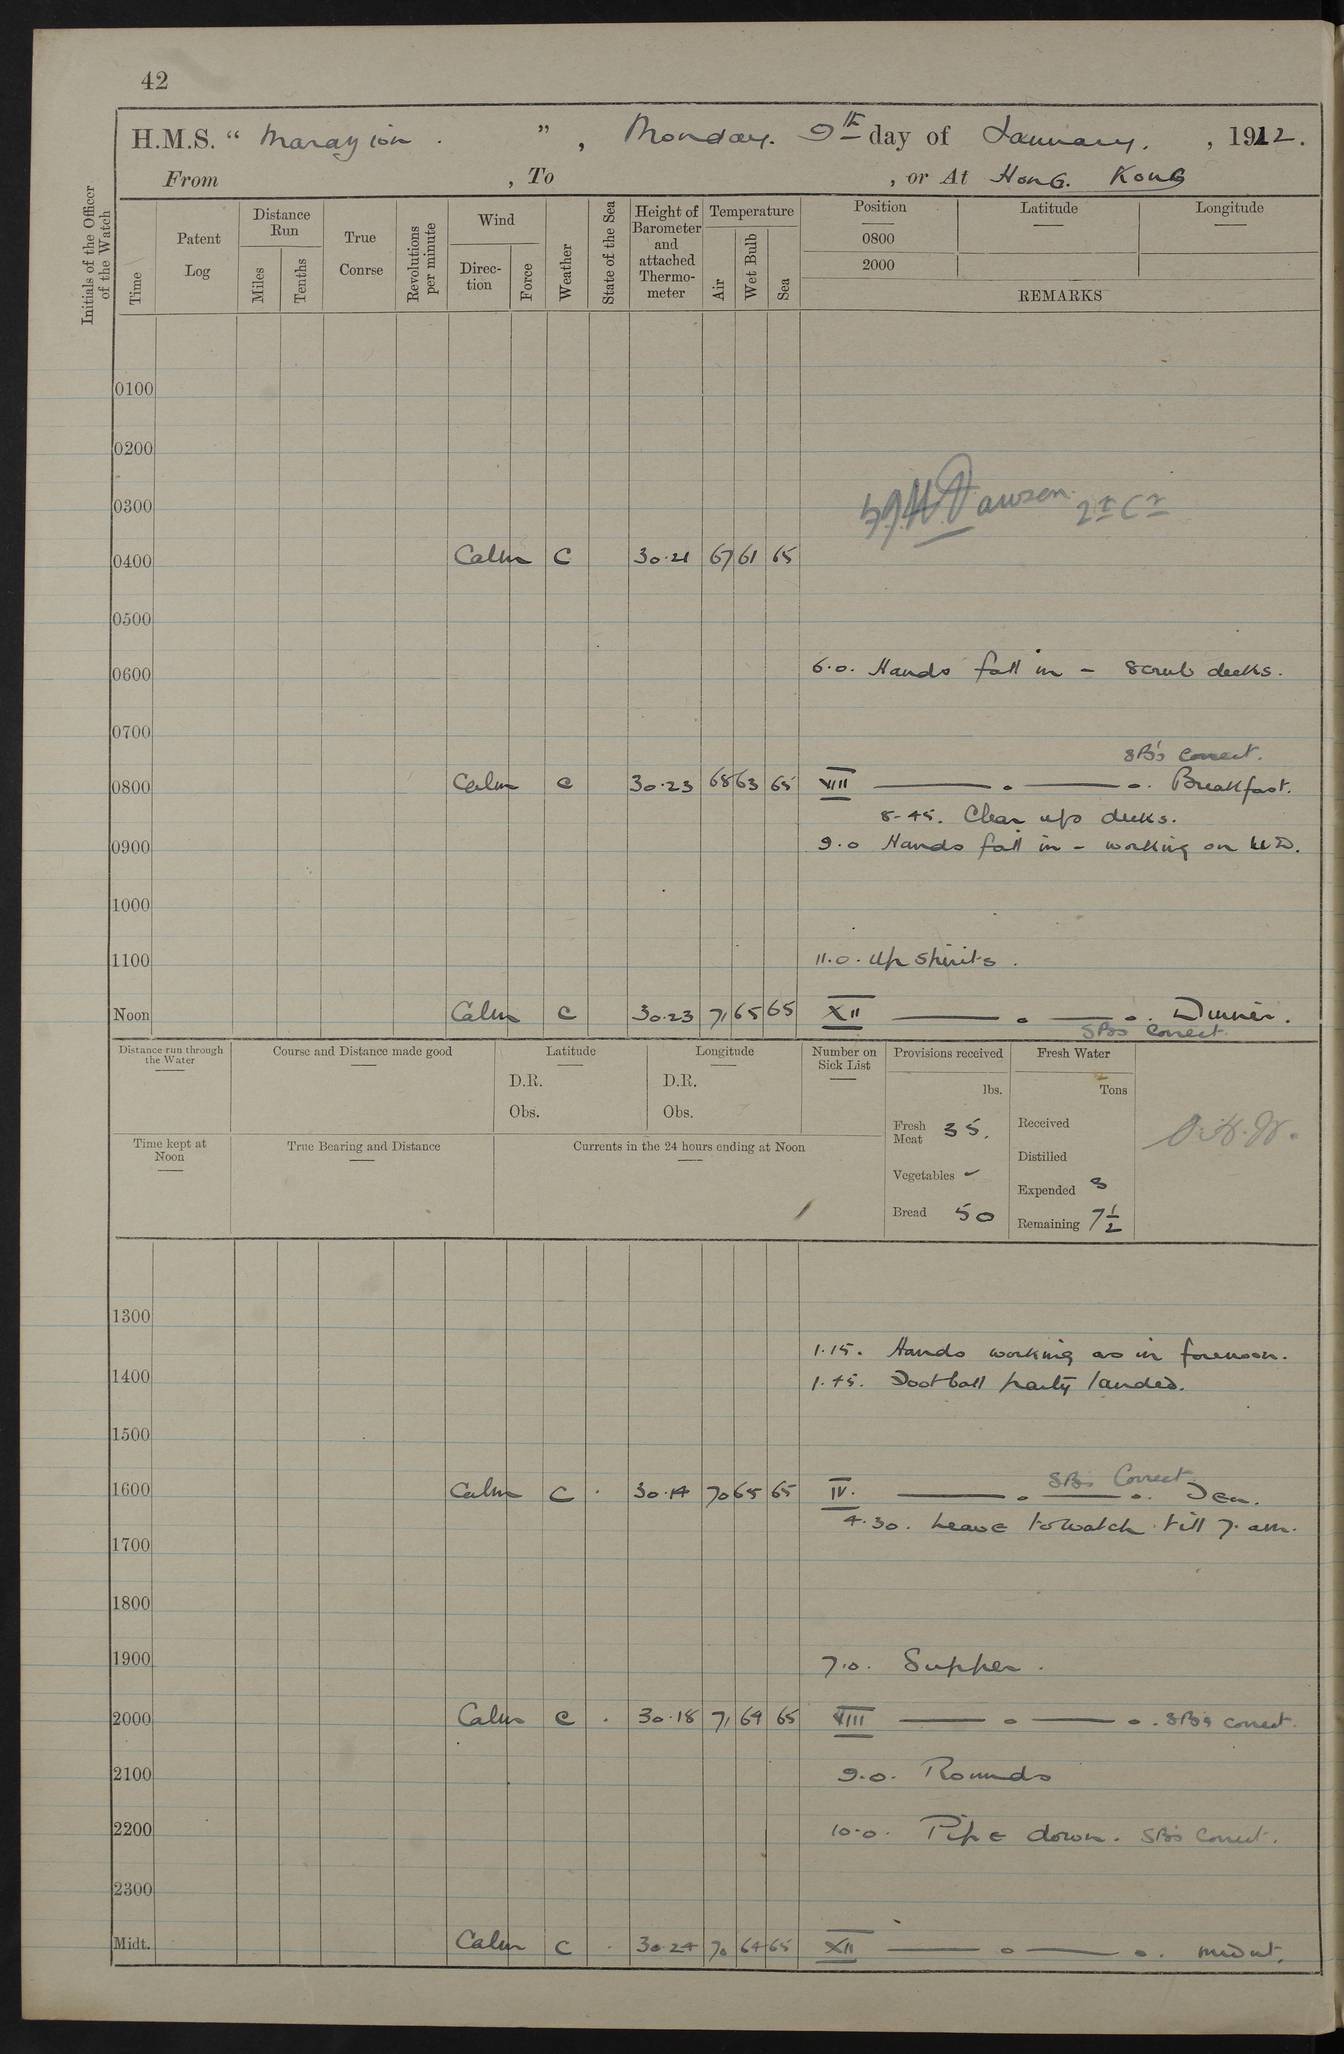 42
H.M.S. “ Marazion . ” , Monday. 9th day of January. , 1912.
From , To , or At Hong. Kong
Initials of the Officer of the Watch
Time
Patent Log
Distance Run
Miles
Tenths
True Conrse
Revolutions per minute
Wind
Direc-tion
Force
Weather
State of the Sea
Height of Barometer and attached Thermo-meter
Temperature
Air
Wet Bulb
Sea
Position Latitude Longitude
0800
2000
REMARKS
0100
0200
0300
Dawson. 2nd Cr
0400 Calm C 30.21 67 61 65
0500
0600 6.0. Hands fall in – Scrub decks.
0700
SBs correct.
0800 Calm C 30.23 68 63 65 VIII —— o —— o. Breakfast.
8-45. Clear up decks.
0900 9.0 Hands fall in – working on
1000
1100 11.0. Up spirits.
Noon Calm C 30.23 71 65 65 XII —— o —— o. Dinner.
SBs correct.
Distance run through the Water
Course and Distance made good
Latitude
D.R.
Obs.
Longitude
D.R.
Obs.
Number on Sick List
Provisions received
lbs.
Fresh Meat 35.
Vegetables -
Bread 50
Fresh Water
Tons
Received
Distilled
Expended 3
Remaining 7 1/2
Time kept at Noon
True Bearing and Distance
Currents in the 24 hours ending at Noon
1300
1.15. Hands working as in forenoon.
1400 1.45. Football party landed.
1500
SBs Correct.
1600 Calm C . 30.14 70 65 65 IV. —— o —— o. Tea.
4.30. Leave to watch till 7. am.
1700
1800
1900 7.0. Supper.
2000 Calm C . 30.18 71 64 65 VIII —— o —— o. SBs correct.
2100 9.0. Rounds
2200 10.0. Pipe down. SBs Correct.
2300
Midt. Calm C . 30.24 70 64 65 XII —— o —— o. midnt.